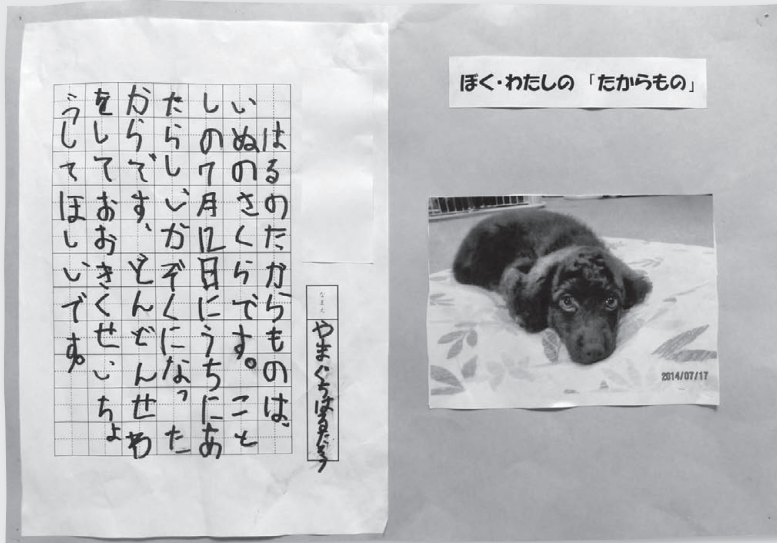 ぼく・わたしの「たからもの」
2014/07/17
なまえ やまぐちはるたろう
はるのたからものは、
いぬのさくらです。こと
しの7月12日にうちにあ
たらしいかぞくになった
からです、どんどんせわ
をしておおきくせいちょ
うしてほしいです。